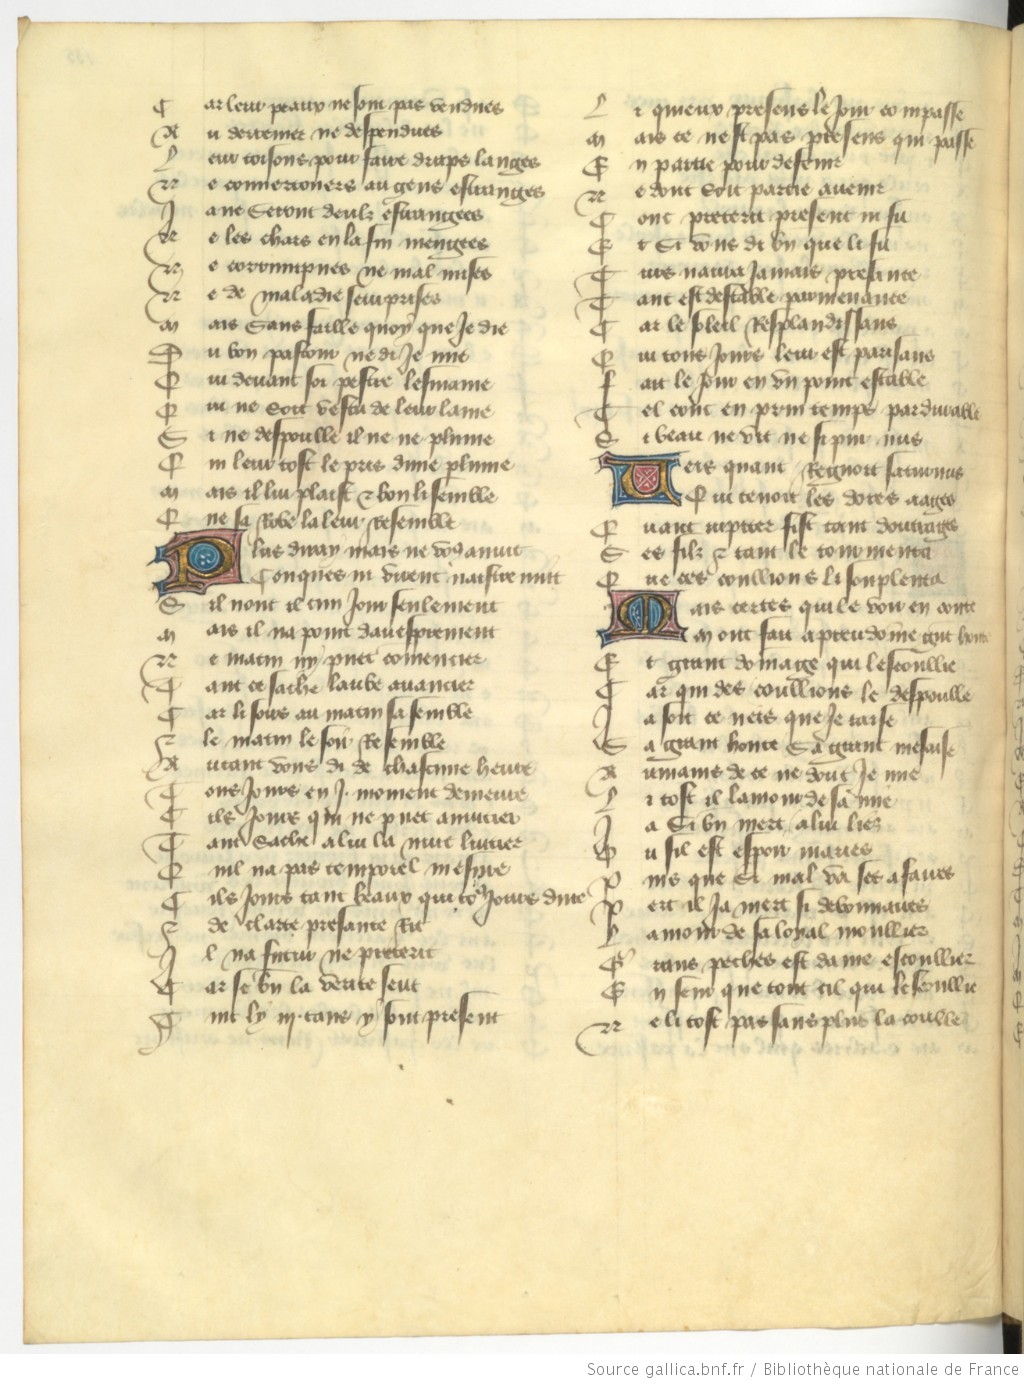 Car leur peaux ne sont pas vendues
Au derrenier ne despendues
Leur toisons pour faire draps langes
Ne couvertouers au gens estranges
Ja ne seront deulz estrangees
Ne les chars en la fin mengees
Ne corrumpues ne mal mises
Ne de maladie seurprises
Mais sans faille quoy que Je die
Du bon pastour ne di Je mie
Qui devant soi pestre les maine
Qui ne soit vestu de leur laine
Si ne despoulle il ne ne plume
Qui leur tost le pris dune plume
Mais il lui plaist & bon li semble
Que sa Robe la leur Resemble
Plus diray mais ne vo9 anuit
Conques ni virent naistre nuit
Sil nont il cun Jour seulement
Mais il na point davesprement
Ne matin ny puet comencier
Tant ce sache laube avancier
Car li soirs au matin sasemble
Et le matin le soir Resemble
Autant vous di de chascune heure
Tous Jours en .J. moment demeure
Cils Jours qui ne puet anuitier
Tant sache a lui la nuit luitier
Quil na pas temporel mesure
Cils Jours tant beaux qui to9 Jours dure
Et de clarte presante Rit
Il na futur ne preterit
Car se bn la verite sent
Tuit ly .iij. tans y sont present
Li quieux presens le Jour compasse
Mais ce nest pas presens qui passe
En partie pour defenir
Ne dont soit partie avenir
Conc preterit present ni fu
Et Si vous di bn que li fu
Turs naura Jamais presante
Tant est destable parmenance
Car le soleil Resplandissans
Qui tous Jours leur est parissans
Fait le Jour en un point estable
Tel conc en prin temps pardurable
Si beau ne vit ne si pur nus
Neis quant Regnoit saturnus
Qui tenoit les dores aages
Quant jupiter fist tant doutrages
Ses filz & tant le tourmenta
Que ces coullions li souplenta
Mais certes qui le voir en conte
Mont fait a preudome tout honte
Et grant domage qui lescoullie
Car qui des coullions le despoulle
Ja soit ce neis que Je taise
Sa grant honte Sa grant mesaise
Aumains de ce ne dout Je mie
Li tost il lamour de samie
Ja Si bn niert a lui liez
Ou sil est espoir maries
Puis que Si mal va ses afaires
Pert il Ja niert si debonnaires
Lamour de sa loyal moullier
Grans peches est dame escoullier
En seur que tout cil qui lescoullie
Ne li tost pas sans plus la coulle
Source gallica.bnf.fr / Bibliothèque nationale de France